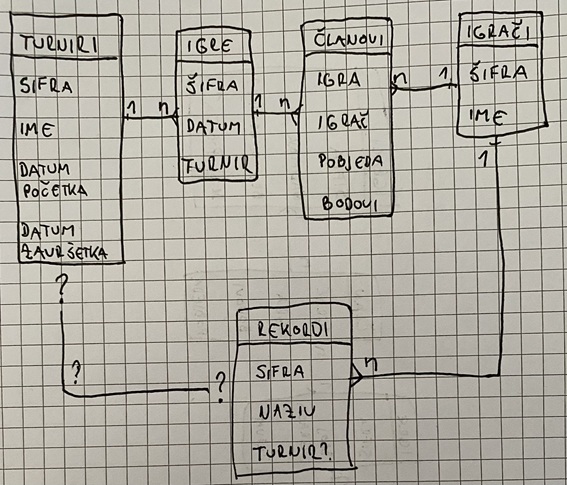 TURNIRI
ŠIFRA
IME
DATUM
POČETKA
DATUM
ZAVRŠETKA
1
n
IGRE
ŠIFRA
DATUM
TURNIR
1
n
ČLANOVI
IGRA
IGRAČ
POBJEDA
BODOVI
n
1
IGRAČI
ŠIFRA
IME
1
?
?
?
REKORDI
SIFRA
NAZIV
TURNIR?
n